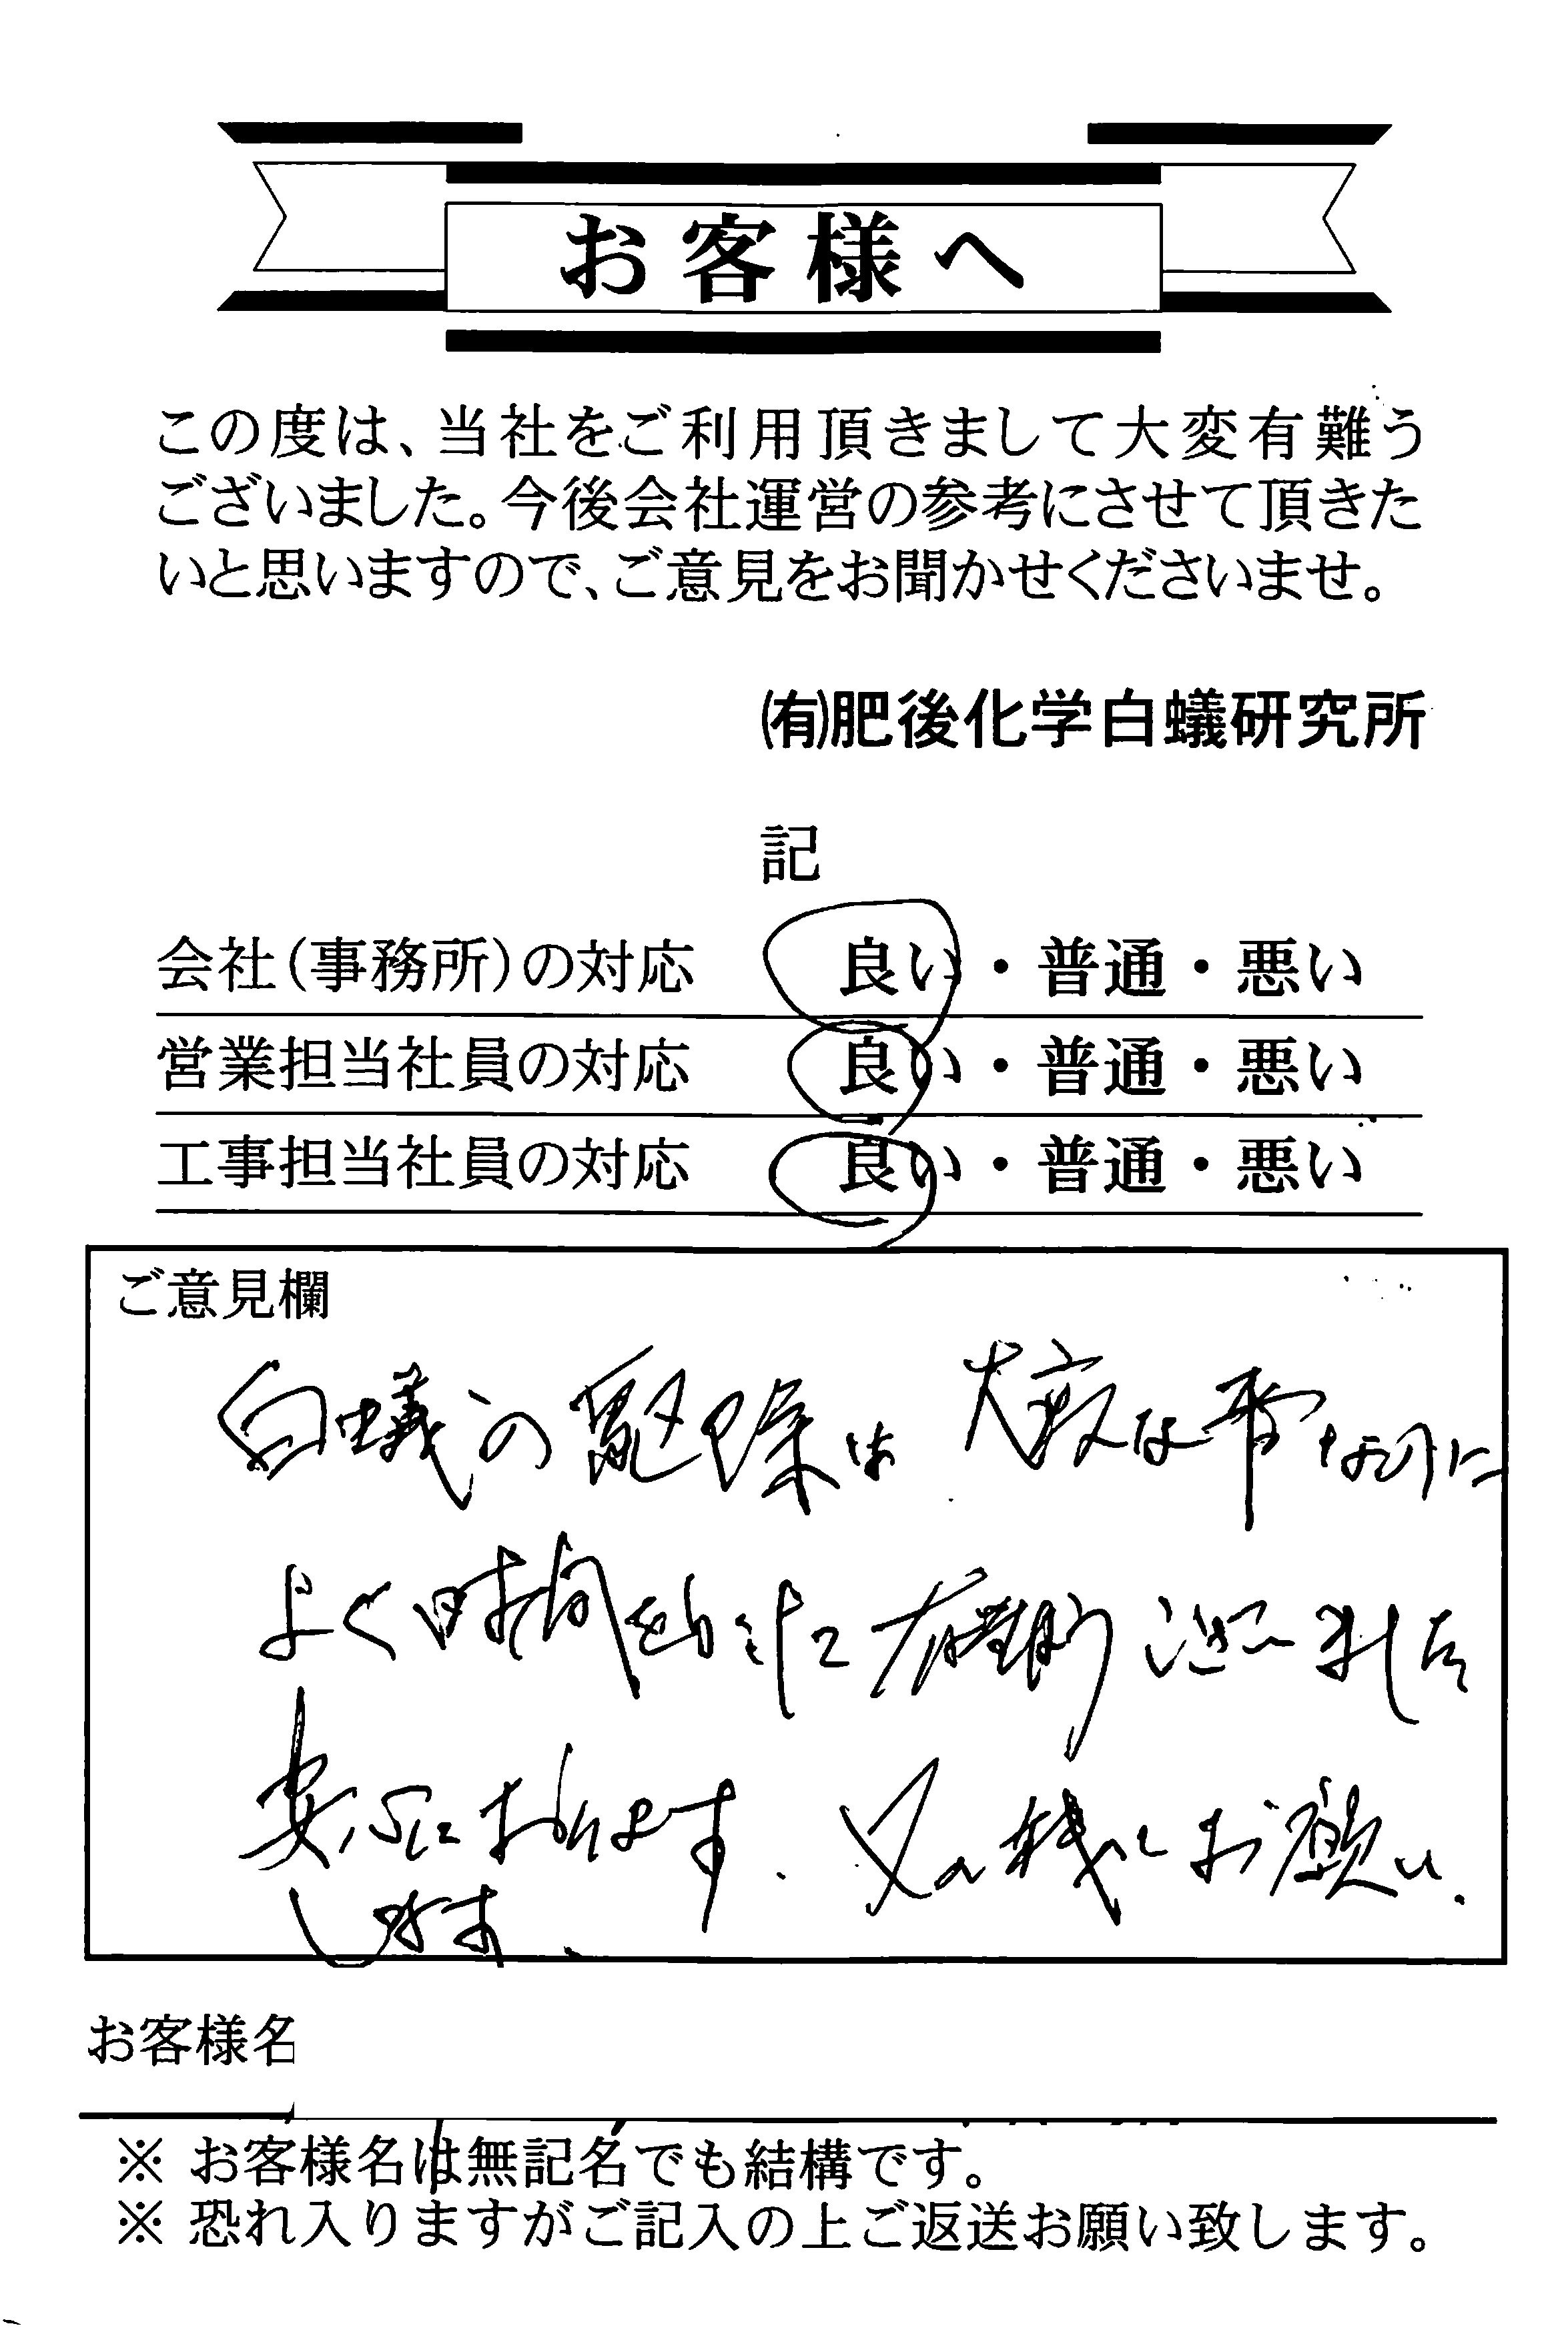 お客様へ
この度は、当社をご利用頂きまして大変有難う
ございました。今後会社運営の参考にさせて頂きた
いと思いますので、ご意見をお聞かせくださいませ。
㈲肥後化学白蟻研究所
記
会社(事務所)の対応 良い・普通・悪い
営業担当社員の対応 良い・普通・悪い
工事担当社員の対応 良い・普通・悪い
ご意見欄
白蟻の駆除は 大変な事なのに
よく時間を
ございました
安心しております. 又の機にお願い
します、
お客様名
※ お客様名は無記名でも結構です。
※ 恐れ入りますがご記入の上ご返送お願い致します。